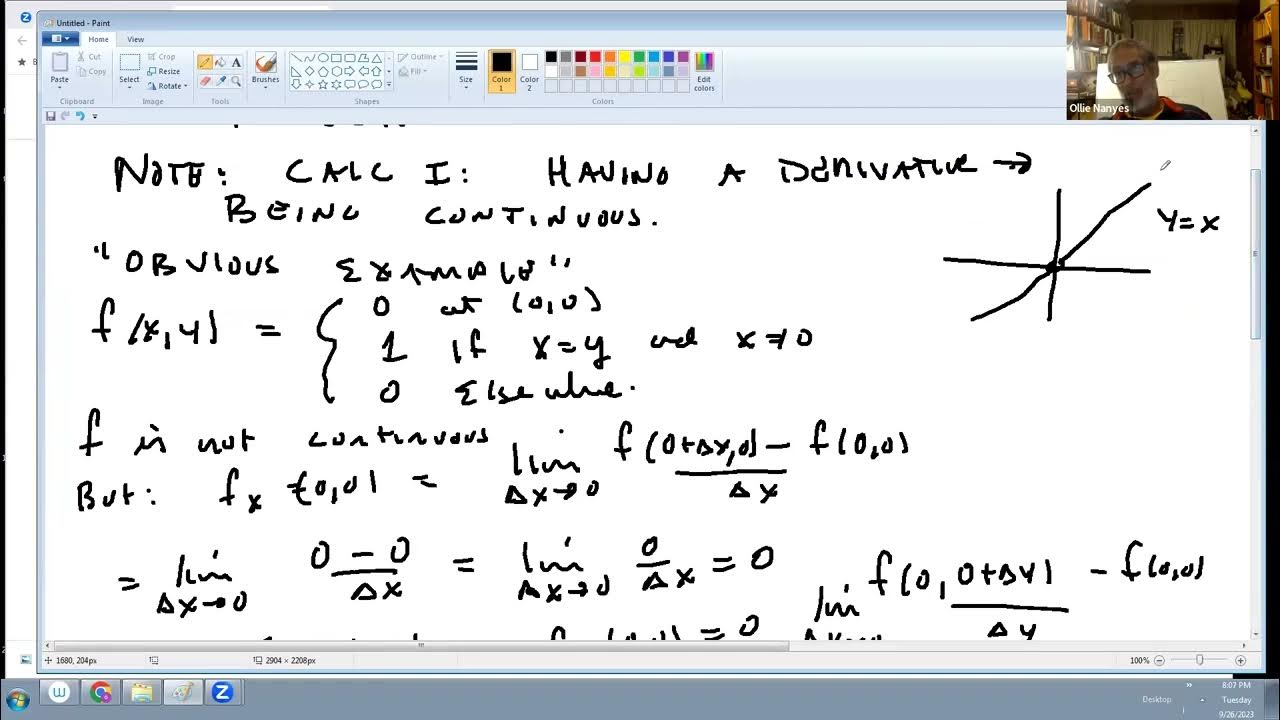 Untitled - Paint
Home View
Paste
Cut
Copy
Clipboard
Select
Crop
Resize
Rotate
Image
Tools
Brushes
Shapes
Outline
Fill
Size
Color 1
Color 2
Edit colors
Colors
Ollie Nanyes
NOTE: CALC I: HAVING A DERIVATIVE →
BEING CONTINUOUS.
y = x
"OBVIOUS EXAMPLE"
f(x,y) = { 0 at (0,0)
1 if x=y and x≠0
0 Elsewhere.
f is not continuous
But: f_x (0,0) = lim Δx→0 f(0+Δx,0) - f(0,0) / Δx
= lim Δx→0 0 - 0 / Δx = lim Δx→0 0 / Δx = 0
(0,0) = 0 lim f(0, 0+Δy) - f(0,0) / Δy
1680, 204px
2904 × 2208px
100%
8:07 PM
Desktop
Tuesday
9/26/2023